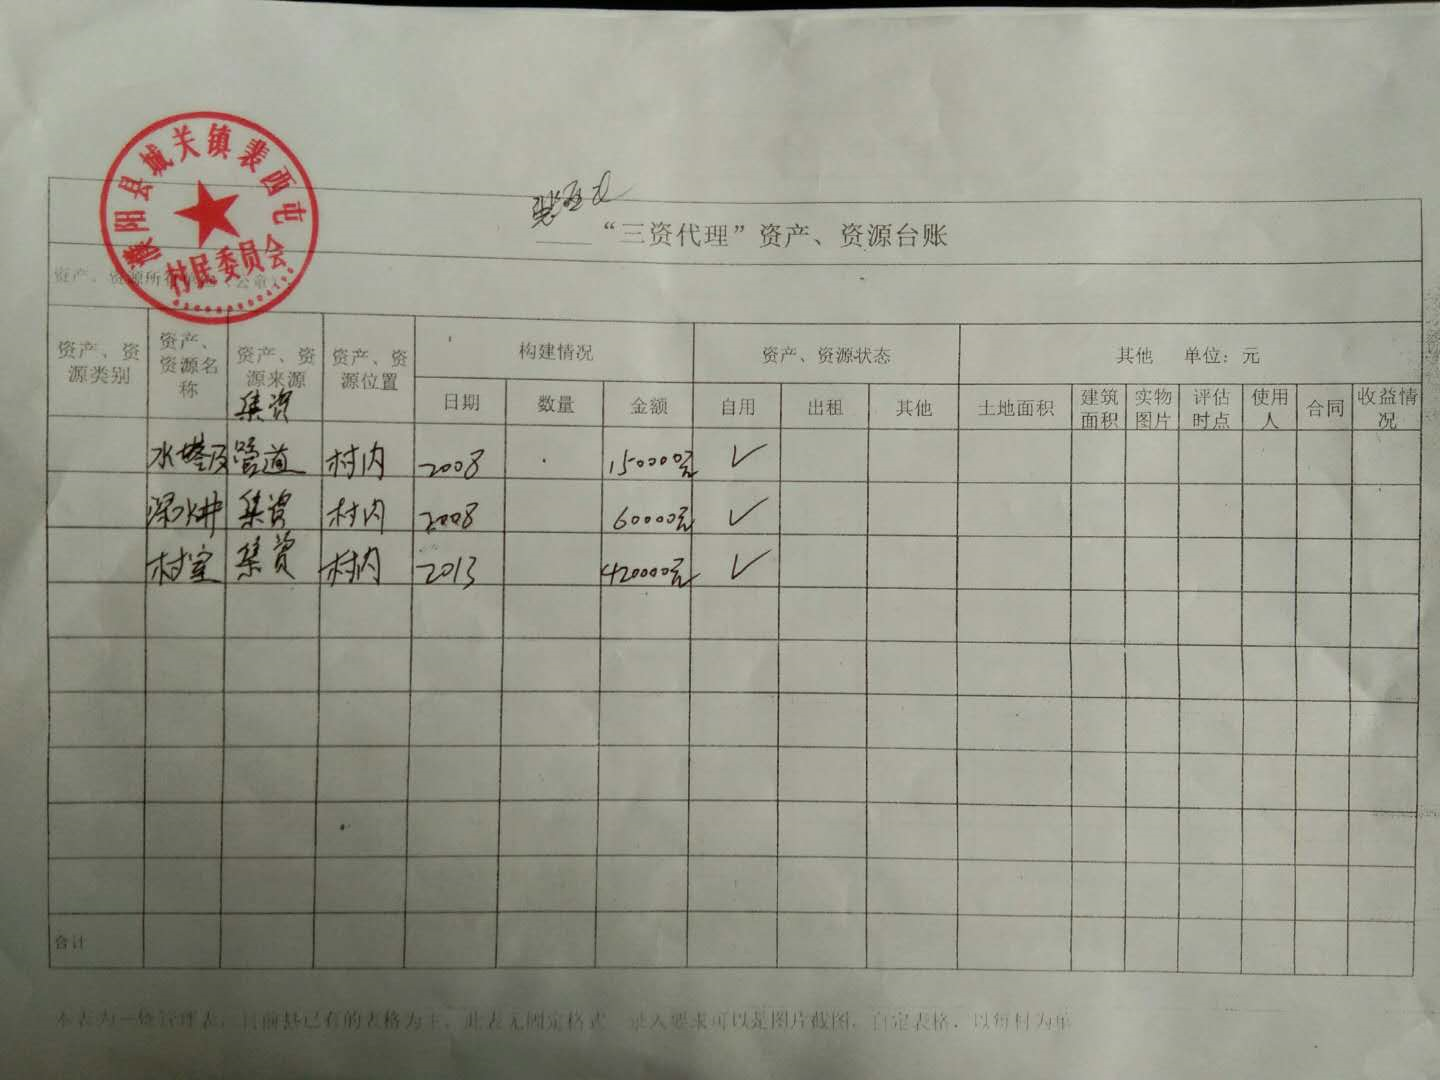 濮阳县城关镇裴西屯
村民委员会
“三资代理”资产、资源台账
资产、资源类别 资产、资源名称 资产、资源来源 资产、资源位置 构建情况 资产、资源状态 其他 单位：元
日期 数量 金额 自用 出租 其他 土地面积 建筑面积 实物图片 评估时点 使用人 合同 收益情况
集资
水塔及管道 村内 2008 150000元 ✓
深水井 集资 村内 2008 60000元 ✓
村室 集资 村内 2013 420000元 ✓
合计
本表为一级管理表，目前县已有的表格为主，此表无固定格式 录入要求可以是图片截图，自定表格，以每村为单